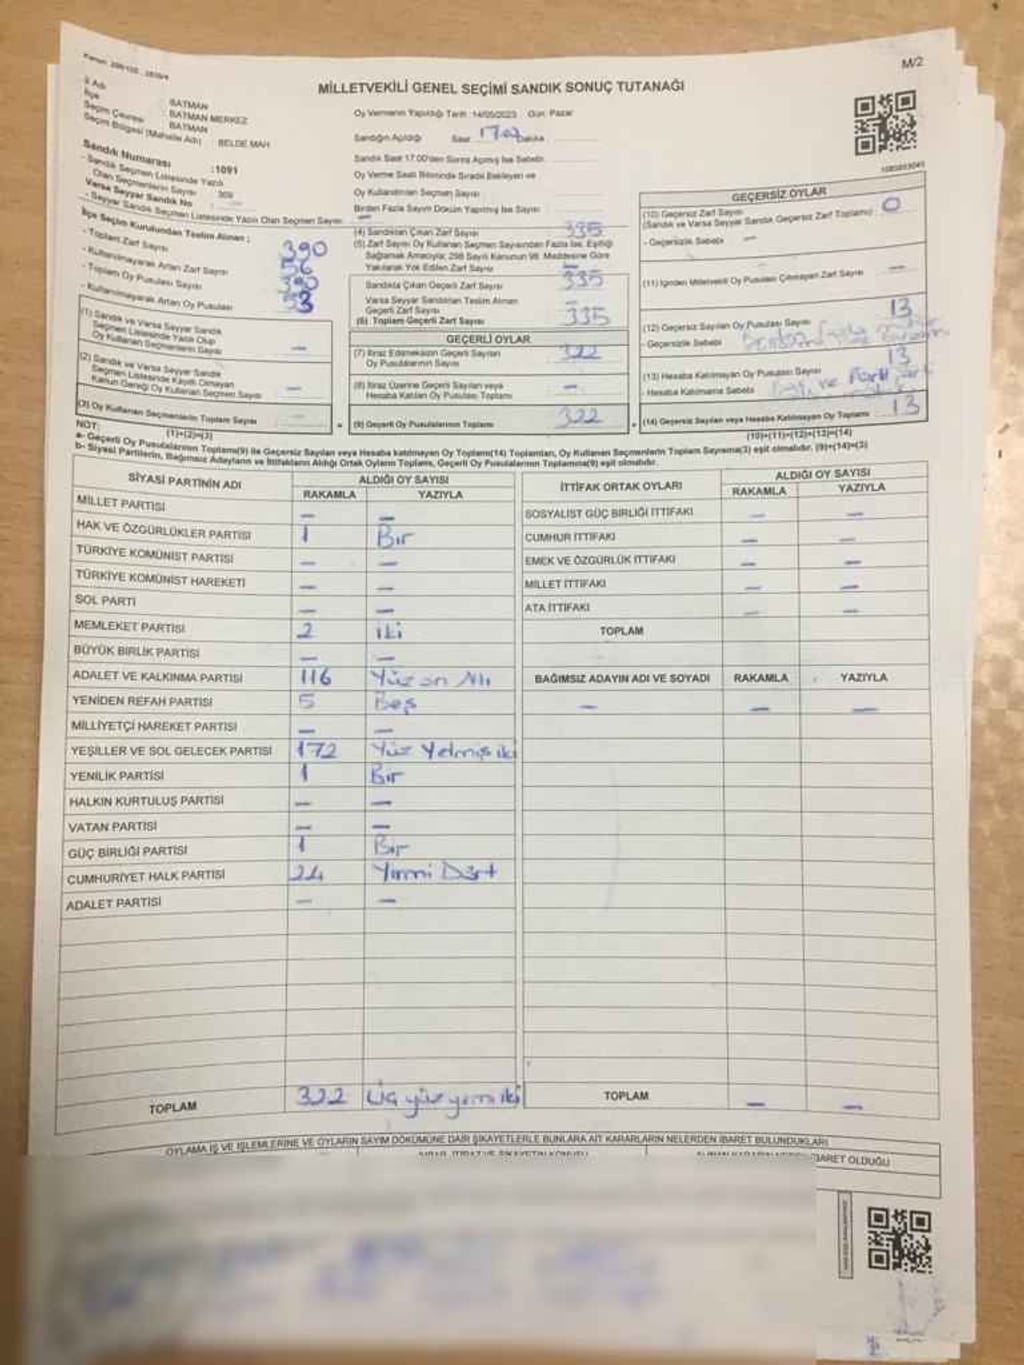 M/2
MİLLETVEKİLİ GENEL SEÇİMİ SANDIK SONUÇ TUTANAĞI
İl Adı : BATMAN
İlçe : BATMAN MERKEZ
Seçim Çevresi : BATMAN
Seçim Bölgesi (Mahalle Adı) : BELDE MAH
Sandık Numarası : 1091
- Sandık Seçmen Listesinde Yazılı
Olan Seçmenlerin Sayısı : 369
Varsa Seyyar Sandık No :
- Seyyar Sandık Seçmen Listesinde Yazılı Olan Seçmen Sayısı
İlçe Seçim Kurulundan Teslim Alınan ;
- Toplam Zarf Sayısı 390
- Kullanılmayarak Artan Zarf Sayısı 56
- Toplam Oy Pusulası Sayısı 390
- Kullanılmayarak Artan Oy Pusulası 53
(1) Sandık ve Varsa Seyyar Sandık
Seçmen Listesinde Yazılı Olup
Oy Kullanan Seçmenlerin Sayısı —
(2) Sandık ve Varsa Seyyar Sandık
Seçmen Listesinde Kayıtlı Olmayan
Kanun Gereği Oy Kullanan Seçmen Sayısı —
(3) Oy Kullanan Seçmenlerin Toplam Sayısı
(1)+(2)=(3)
Oy Vermenin Yapıldığı Tarih :14/05/2023 Gün: Pazar
Sandığın Açıldığı Saat 17.02 Dakika
Sandık Saat 17:00'den Sonra Açılmış İse Sebebi
Oy Verme Saati Bitiminde Sırada Bekleyen ve
Oy Kullandırılan Seçmen Sayısı
Birden Fazla Sayım Döküm Yapılmış İse Sayısı
(4) Sandıktan Çıkan Zarf Sayısı 335
(5) Zarf Sayısı Oy Kullanan Seçmen Sayısından Fazla İse, Eşitliği
Sağlamak Amacıyla; 298 Sayılı Kanunun 98. Maddesine Göre
Yakılarak Yok Edilen Zarf Sayısı —
Sandıkta Çıkan Geçerli Zarf Sayısı 335
Varsa Seyyar Sandıktan Teslim Alınan
Geçerli Zarf Sayısı —
(6) Toplam Geçerli Zarf Sayısı 335
GEÇERLİ OYLAR
(7) İtiraz Edilmeksizin Geçerli Sayılan
Oy Pusulalarının Sayısı 322
(8) İtiraz Üzerine Geçerli Sayılan veya
Hesaba Katılan Oy Pusulası Toplamı —
(9) Geçerli Oy Pusulalarının Toplamı 322
GEÇERSİZ OYLAR
(10) Geçersiz Zarf Sayısı
(Sandık ve Varsa Seyyar Sandık Geçersiz Zarf Toplamı) : 0
- Geçersizlik Sebebi —
(11) İçinden Milletvekili Oy Pusulası Çıkmayan Zarf Sayısı —
(12) Geçersiz Sayılan Oy Pusulası Sayısı 13
- Geçersizlik Sebebi
(13) Hesaba Katılmayan Oy Pusulası Sayısı 13
- Hesaba Katılmama Sebebi
(14) Geçersiz Sayılan veya Hesaba Katılmayan Oy Toplamı 13
(10)+(11)+(12)+(13)=(14)
NOT:
a- Geçerli Oy Pusulalarının Toplamı(9) ile Geçersiz Sayılan veya Hesaba katılmayan Oy Toplamı(14) Toplamları, Oy Kullanan Seçmenlerin Toplam Sayısına(3) eşit olmalıdır. (9)+(14)=(3)
b- Siyasi Partilerin, Bağımsız Adayların ve İttifakların Aldığı Ortak Oyların Toplamı, Geçerli Oy Pusulalarının Toplamına(9) eşit olmalıdır.
SİYASİ PARTİNİN ADI ALDIĞI OY SAYISI
RAKAMLA YAZIYLA
MİLLET PARTİSİ — —
HAK VE ÖZGÜRLÜKLER PARTİSİ 1 Bir
TÜRKİYE KOMÜNİST PARTİSİ — —
TÜRKİYE KOMÜNİST HAREKETİ — —
SOL PARTİ — —
MEMLEKET PARTİSİ 2 iki
BÜYÜK BİRLİK PARTİSİ — —
ADALET VE KALKINMA PARTİSİ 116 Yüz on Altı
YENİDEN REFAH PARTİSİ 5 Beş
MİLLİYETÇİ HAREKET PARTİSİ — —
YEŞİLLER VE SOL GELECEK PARTİSİ 172 Yüz Yetmiş iki
YENİLİK PARTİSİ 1 Bir
HALKIN KURTULUŞ PARTİSİ — —
VATAN PARTİSİ — —
GÜÇ BİRLİĞİ PARTİSİ 1 Bir
CUMHURİYET HALK PARTİSİ 24 Yirmi Dört
ADALET PARTİSİ — —
TOPLAM 322
İTTİFAK ORTAK OYLARI ALDIĞI OY SAYISI
RAKAMLA YAZIYLA
SOSYALİST GÜÇ BİRLİĞİ İTTİFAKI — —
CUMHUR İTTİFAKI — —
EMEK VE ÖZGÜRLÜK İTTİFAKI — —
MİLLET İTTİFAKI — —
ATA İTTİFAKI — —
TOPLAM
BAĞIMSIZ ADAYIN ADI VE SOYADI RAKAMLA YAZIYLA
— — —
TOPLAM — —
OYLAMA İŞ VE İŞLEMLERİNE VE OYLARIN SAYIM DÖKÜMÜNE DAİR ŞİKAYETLERLE BUNLARA AİT KARARLARIN NELERDEN İBARET BULUNDUKLARI
İBARET OLDUĞU